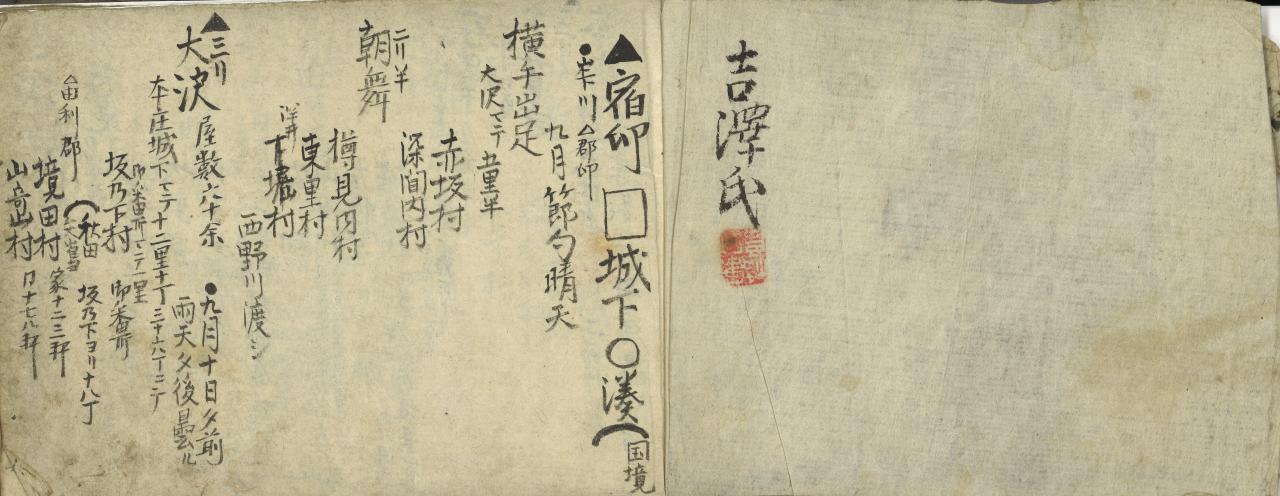 吉澤氏
▲宿印 □城下 ○湊 ⌒国境
●川 △郡印
九月節句晴天
横手出足
大沢マテ 五里半
赤坂村
深間内村
二リ半
朝舞
樽見内村
東里村
下堀村
西野川渡シ
▲三リ
大沢 屋敷六十余
●九月十日夕前
雨天夕後曇ル
本庄城下マテ十二里十丁 三十六丁ニテ
御番所マテ一里
坂乃下村 御番所
秋田 坂乃下ヨリ十八丁
△由利郡
境田村 家十二三軒
村 〃十七八軒